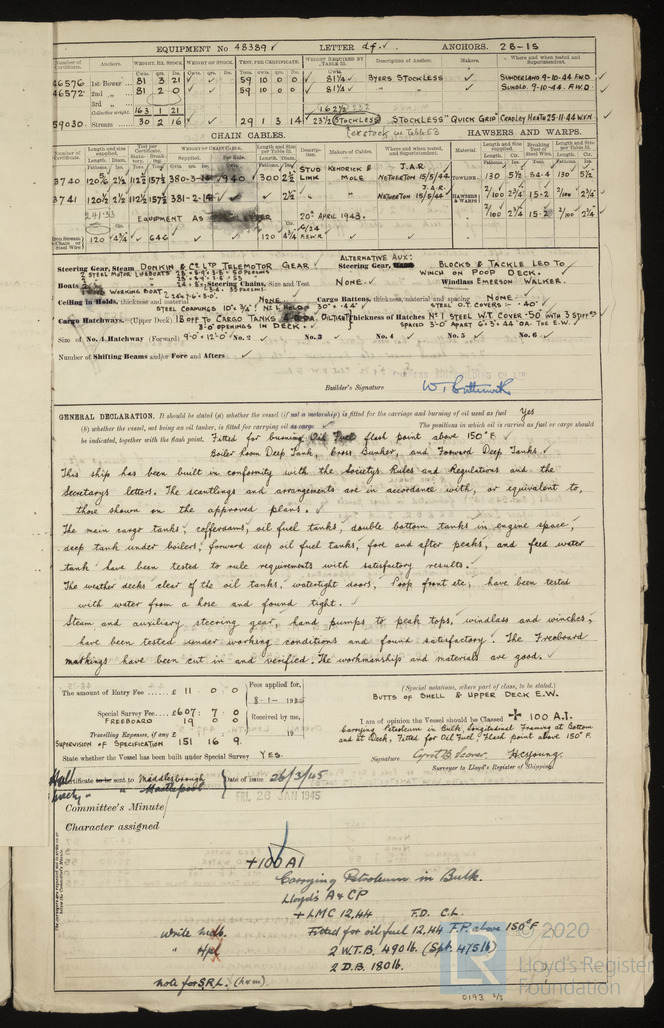 EQUIPMENT No 48389 LETTER df. ANCHORS. 2B-1S
Number of Certificate. Anchors. WEIGHT, EX. STOCK WEIGHT OF STOCK. TEST, PER CERTIFICATE. WEIGHT REQUIRED BY TABLE 53. Description of Anchor. Makers. Where and when tested and Superintendent.
46576 1st Bower 81 3 21 59 10 0 0 81¼ BYERS STOCKLESS SUNDERLAND 9-10-44 F.W.D
46572 2nd „ 81 2 0 59 10 0 0 81¼ „ „ SUNDLD. 9-10-44. F.W.D
3rd „
Collective weight. 163 1 21 162½
59030 Stream 30 2 16 29 1 3 14 23½ (STOCKLESS) "STOCKLESS" QUICK GRIP CRADLEY HEATH 25-11-44 W.Y.H
CHAIN CABLES. HAWSERS AND WARPS.
3740 120 2½ 112½ 157½ 380-3- 940 300 2½ STUD LINK KENDRICK & MOLE J.A.R. NETHERTON 15/5/44 TOWLINE 130 5½ 84.4 130 5½
3741 120½ 2½ 112½ 157½ 381-2-14 2½ J.A.R. NETHERTON 15/5/44 HAWSERS & WARPS 2/100 2¾ 15.2 2/100 2¾
241.33 EQUIPMENT AS 20th APRIL 1943. 2/100 2¾ 15.2 2/100 2¼
Iron Stream Chain or Steel Wire 120 4¾ 64.6 120 4¾ 6/24 F.S.W.R.
Steering Gear, Steam DONKIN & Co LTD TELEMOTOR GEAR ALTERNATIVE AUX: Steering Gear, Hand BLOCKS & TACKLE LED TO WINCH ON POOP DECK.
Boats 2 STEEL MOTOR LIFEBOATS
WORKING BOAT Steering Chains, Size and Test NONE. Windlass EMERSON WALKER.
Ceiling in Holds, thickness and material NONE Cargo Battens, thickness, material and spacing NONE
STEEL COAMINGS 10" x ¾" No 1 HOLD 30" x .44" STEEL O.T. COVERS - .40"
Cargo Hatchways. (Upper Deck) 18 OFF TO CARGO TANKS OILTIGHT Thickness of Hatches No 1 STEEL W.T. COVER .50" WITH 3 STIFFRS
3'-0" OPENINGS IN DECK. SPACED 3'-0" APART 6" x 5" x .44" OA. TOE E.W.
Size of No. 1 Hatchway (Forward) 9'-0" x 12'-0" No. 2 No. 3 No. 4 No. 5 No. 6
Number of Shifting Beams and/or Fore and Afters
Builder's Signature
GENERAL DECLARATION. It should be stated (a) whether the vessel (if not a motorship) is fitted for the carriage and burning of oil used as fuel Yes
(b) whether the vessel, not being an oil tanker, is fitted for carrying oil as cargo The positions in which oil is carried as fuel or cargo should
be indicated, together with the flash point. Fitted for burning Oil Fuel flash point above 150° F.
Boiler Room Deep Tank, Cross Bunker, and Forward Deep Tanks.
This ship has been built in conformity with the Societys Rules and Regulations and the
Secretarys letters. The scantlings and arrangements are in accordance with, or equivalent to,
those shown on the approved plans.
The main cargo tanks, cofferdams, oil fuel tanks, double bottom tanks in engine space,
deep tank under boilers, forward deep oil fuel tanks, fore and after peaks, and feed water
tank have been tested to rule requirements with satisfactory results.
The weather decks clear of the oil tanks, watertight doors, Poop front etc, have been tested
with water from a hose and found tight.
Steam and auxiliary steering gear, hand pumps to peak tops, windlass and winches,
have been tested under working conditions and found satisfactory. The Freeboard
markings have been cut in and verified. The workmanship and materials are good.
The amount of Entry Fee .... £ 11 0 0
Fees applied for,
8-1-19
Special Survey Fee .... £607: 7. 0
FREEBOARD 19 0 0
Received by me,
Travelling Expenses, if any £ 19
SUPERVISION OF SPECIFICATION 151 16 9
State whether the Vessel has been built under Special Survey YES.
(Special notations, where part of class, to be stated.)
BUTTS OF SHELL & UPPER DECK E.W.
I am of opinion the Vessel should be Classed + 100 A.1.
Carrying Petroleum in Bulk, Longitudinal Framing at Bottom
and at Deck, Fitted for Oil Fuel, Flash point above 150° F.
Signature
Surveyor to Lloyd's Register of Shipping.
Certificate to be sent to Middlesbrough Date of issue 26/3/45
FRI. 26 JAN 1945
Committee's Minute
Character assigned
+100 A1
Carrying Petroleum in Bulk.
Lloyd's A & CP
+ LMC 12,44 F.D. C.L.
Write Mdb. Fitted for oil fuel 12,44 F.P. above 150°F
" Hpl 2 W.T.B. 490 lb (Spt. 475 lb)
2 D.B. 180 lb.
note for S.R.L.
© 2020
LR
Lloyd's Register
Foundation
0193 2/2